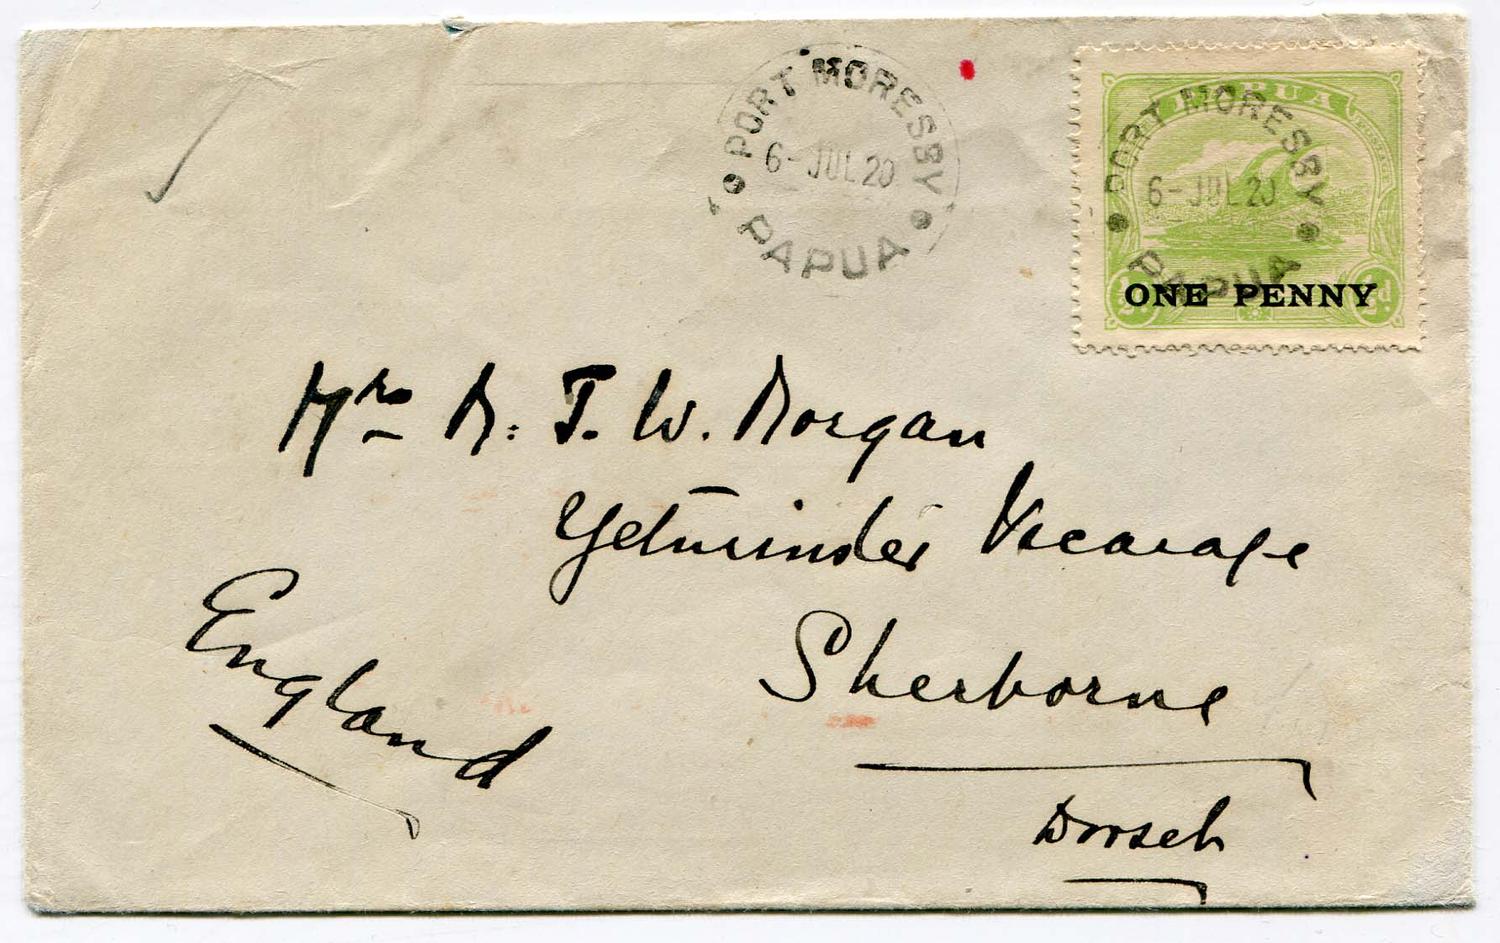 PORT MORESBY
6-JUL 20
PAPUA
PAPUA
PORT MORESBY
6-JUL 20
PAPUA
ONE PENNY
½d ½d
Mrs M. F. W. Morgan
Yetminster Vicarage
Sherborne
Dorset
England